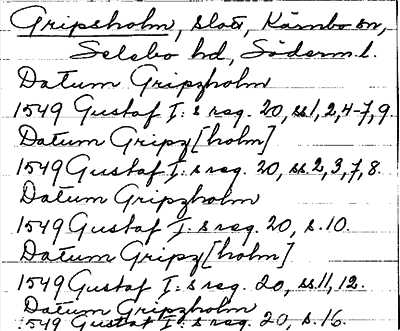 Gripsholm, slott, Kärnbo sn,
Selebo hd, Söderm. l.
Datum Gripzholm
1549 Gustaf I:s reg. 20, ss 1, 2, 4-7, 9.
Datum Gripz[holm]
1549 Gustaf I:s reg. 20, ss. 2, 3, 7, 8.
Datum Gripzholm
1549 Gustaf I:s reg. 20, s. 10.
Datum Gripz[holm]
1549 Gustaf I:s reg. 20, ss 11, 12.
Datum Gripzholm
1549 Gustaf I:s reg. 20, s. 16